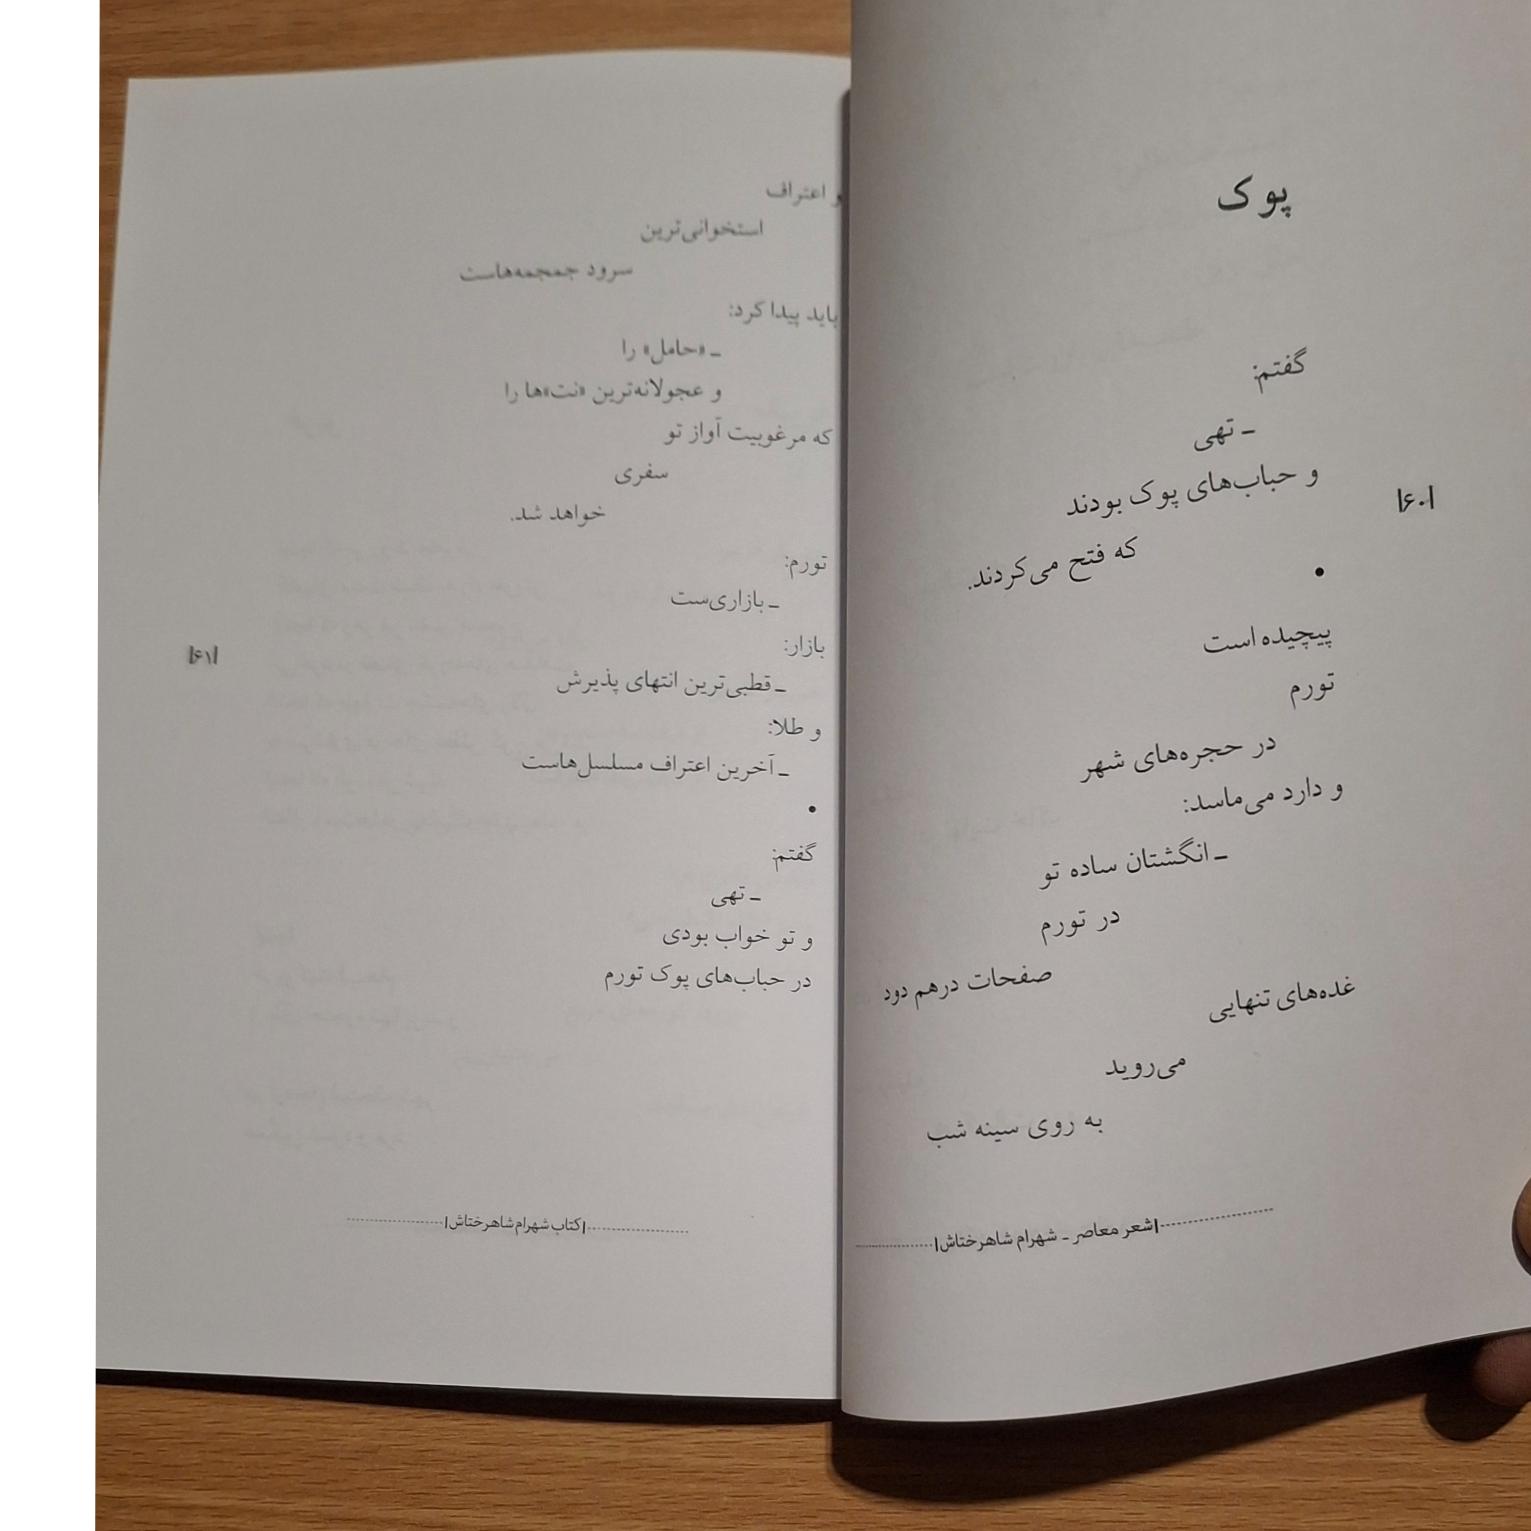 پوک
گفتم:
ـ تهی
و حباب‌های پوک بودند
که فتح می‌کردند.
•
پیچیده است
تورم
در حجره‌های شهر
و دارد می‌ماسد:
ـ انگشتان ساده تو
در تورم
صفحات درهم دود
غده‌های تنهایی
می‌روید
به روی سینه شب
|۶۰|
|شعر معاصر ـ شهرام شاهرختاش|
و اعتراف
استخوانی‌ترین
سرود جمجمه‌هاست
باید پیدا کرد:
ـ «حامل» را
و عجولانه‌ترین «نت»ها را
که مرغوبیت آواز تو
سفری
خواهد شد.
تورم:
ـ بازاری‌ست
بازار:
ـ قطبی‌ترین انتهای پذیرش
و طلا:
ـ آخرین اعتراف مسلسل‌هاست
•
گفتم:
ـ تهی
و تو خواب بودی
در حباب‌های پوک تورم
|۶۱|
|کتاب شهرام شاهرختاش|